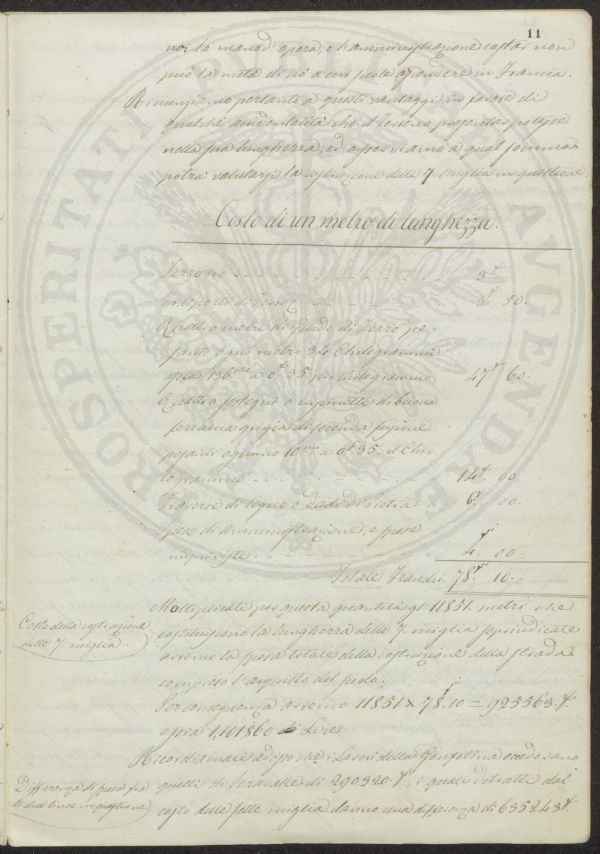 11
noi la mano d'opera, e l'amministrazione costar non
può la metà di ciò a cui suole ascendere in Francia.
Rinunziamo pertanto a questi vantaggi in favore di
qualche accidentalità che il terreno presentar potesse
nella sua lunghezza, ed osserviamo a qual somma
potrà valutarsi la costruzione delle 7. miglia in questione.
Costo di un metro di lunghezza.
Terreno 3.f
Trasporti di terra 3.f 50.
Quattro metri di Guide di Ferro pe-
sante ogni metro 34 Chilogrammi
ossia 136 a 0.f 35. per chilogrammo 47.f 60.
Quattro sostegni o cuscinetti di buona
ferraccia grigia di seconda fusione
pesanti ognuno 10 a 0.f 35. il Chi-
logrammo 14.f 00.
Traverse di legno o dadi di pietra 6.f 00.
Spese di amministrazione, e spese
impreviste 4.f 00.
Totale Franchi 78.f 10.
Moltiplicate per questa quantità gl' 11851. metri che
costituiscono la lunghezza delle 7. miglia sopraindicate
avremo la spesa totale della costruzione della strada
compreso l'acquisto del suolo.
Costo della costruzione
delle 7. miglia.
Per conseguenza avremo 11851 x 78.f,10 = 925563.f
ossia 1,101860 Lire
Ricordiamoci adesso che i lavori della Gonfolina eccedevano
quelli di Serravalle di 290320.f, i quali detratti dal
costo delle sette miglia danno una differenza di 635243.f
Differenza di spesa fra
le due linee in questione
PROSPERITATI PUBLICAE AUGENDAE